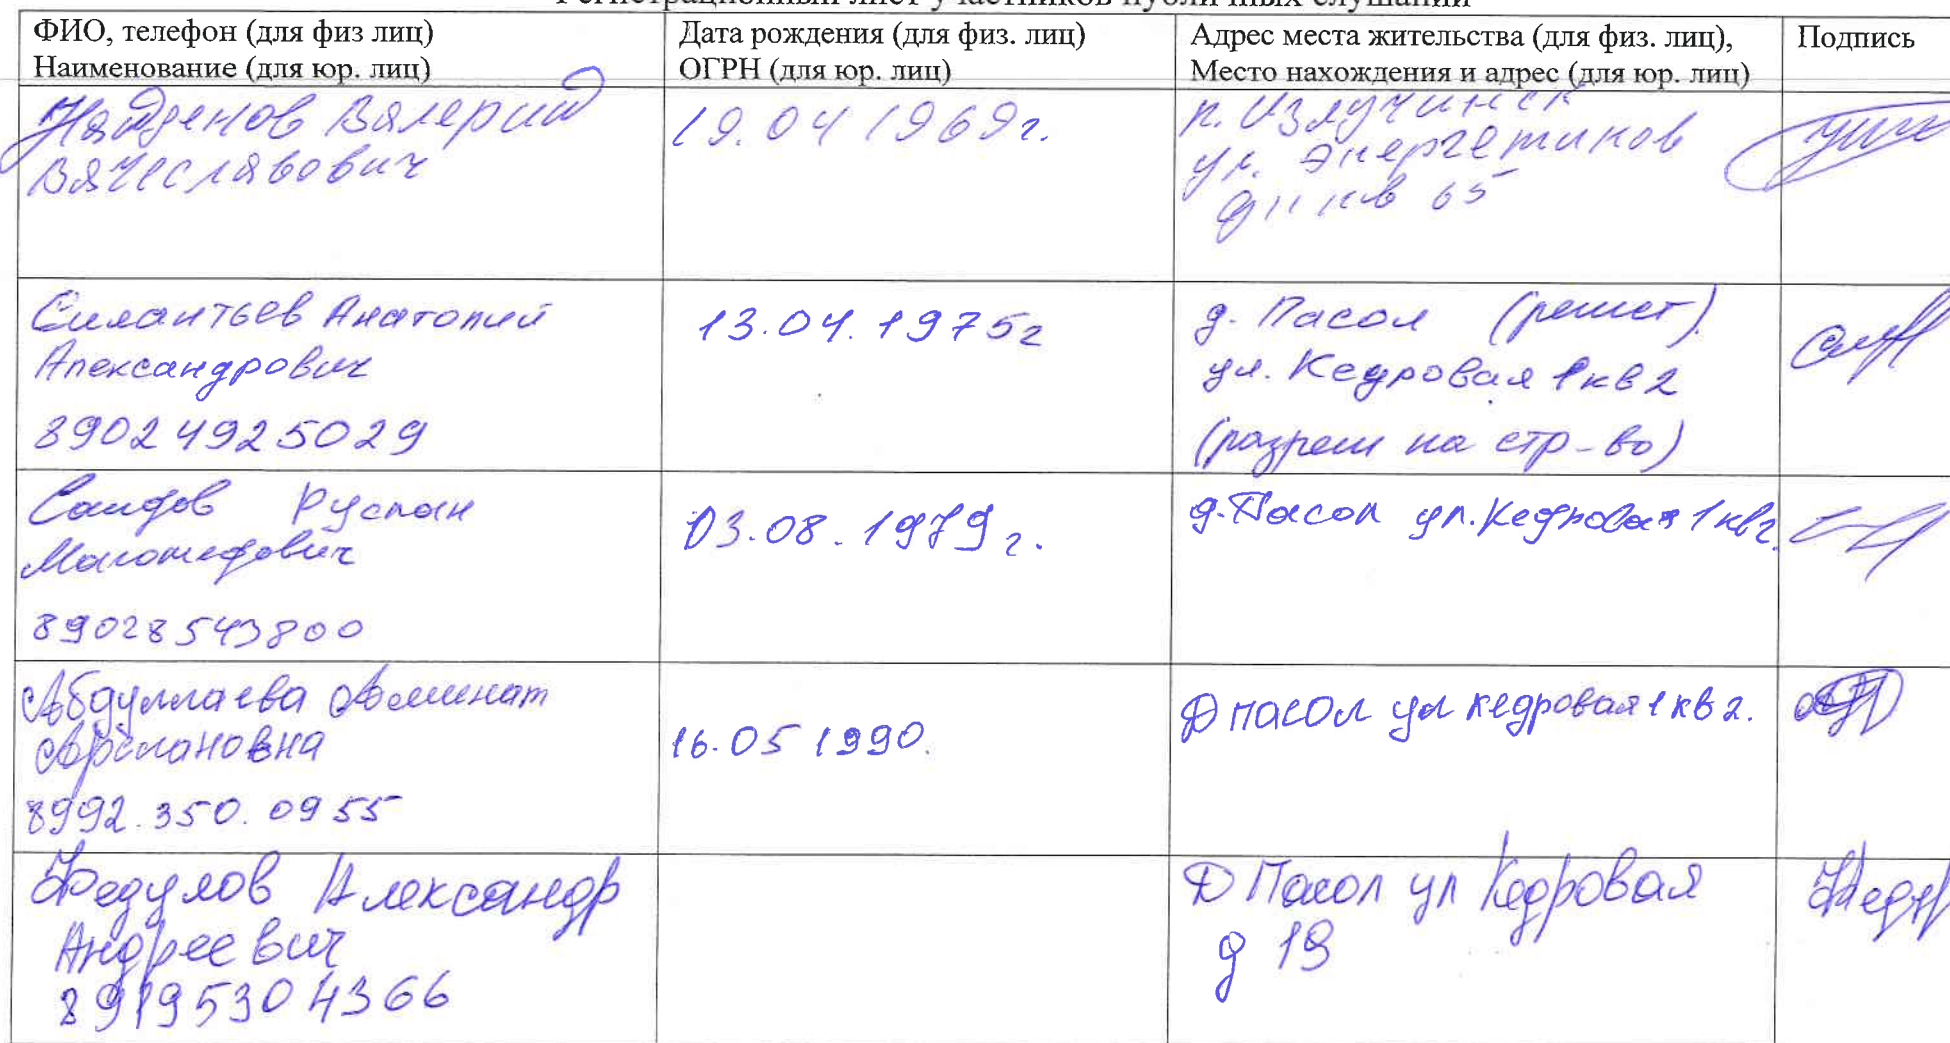 Регистрационный лист участников публичных слушаний
ФИО, телефон (для физ лиц)
Наименование (для юр. лиц)
Дата рождения (для физ. лиц)
ОГРН (для юр. лиц)
Адрес места жительства (для физ. лиц),
Место нахождения и адрес (для юр. лиц)
Подпись
Найденов Валерий
Вячеславович
19.04 1969г.
п. Излучинск
ул. Энергетиков
д 11 кв 65
Силантьев Анатолий
Александрович
89024925029
13.04.1975г
д. Пасол
ул. Кедровая 1 кв 2
(разреш на стр-во)
Саидов Руслан
Магомедович
89028543800
03.08.1979г.
д. Пасол ул. Кедровая 1 кв 2.
Абдуллаева Аминат
Арслановна
8992.350.0955
16.05 1990.
Д пасол ул кедровая 1 кв 2.
Федулов Александр
Андреевич
89195304366
Д Пасол ул Кедровая
д 19